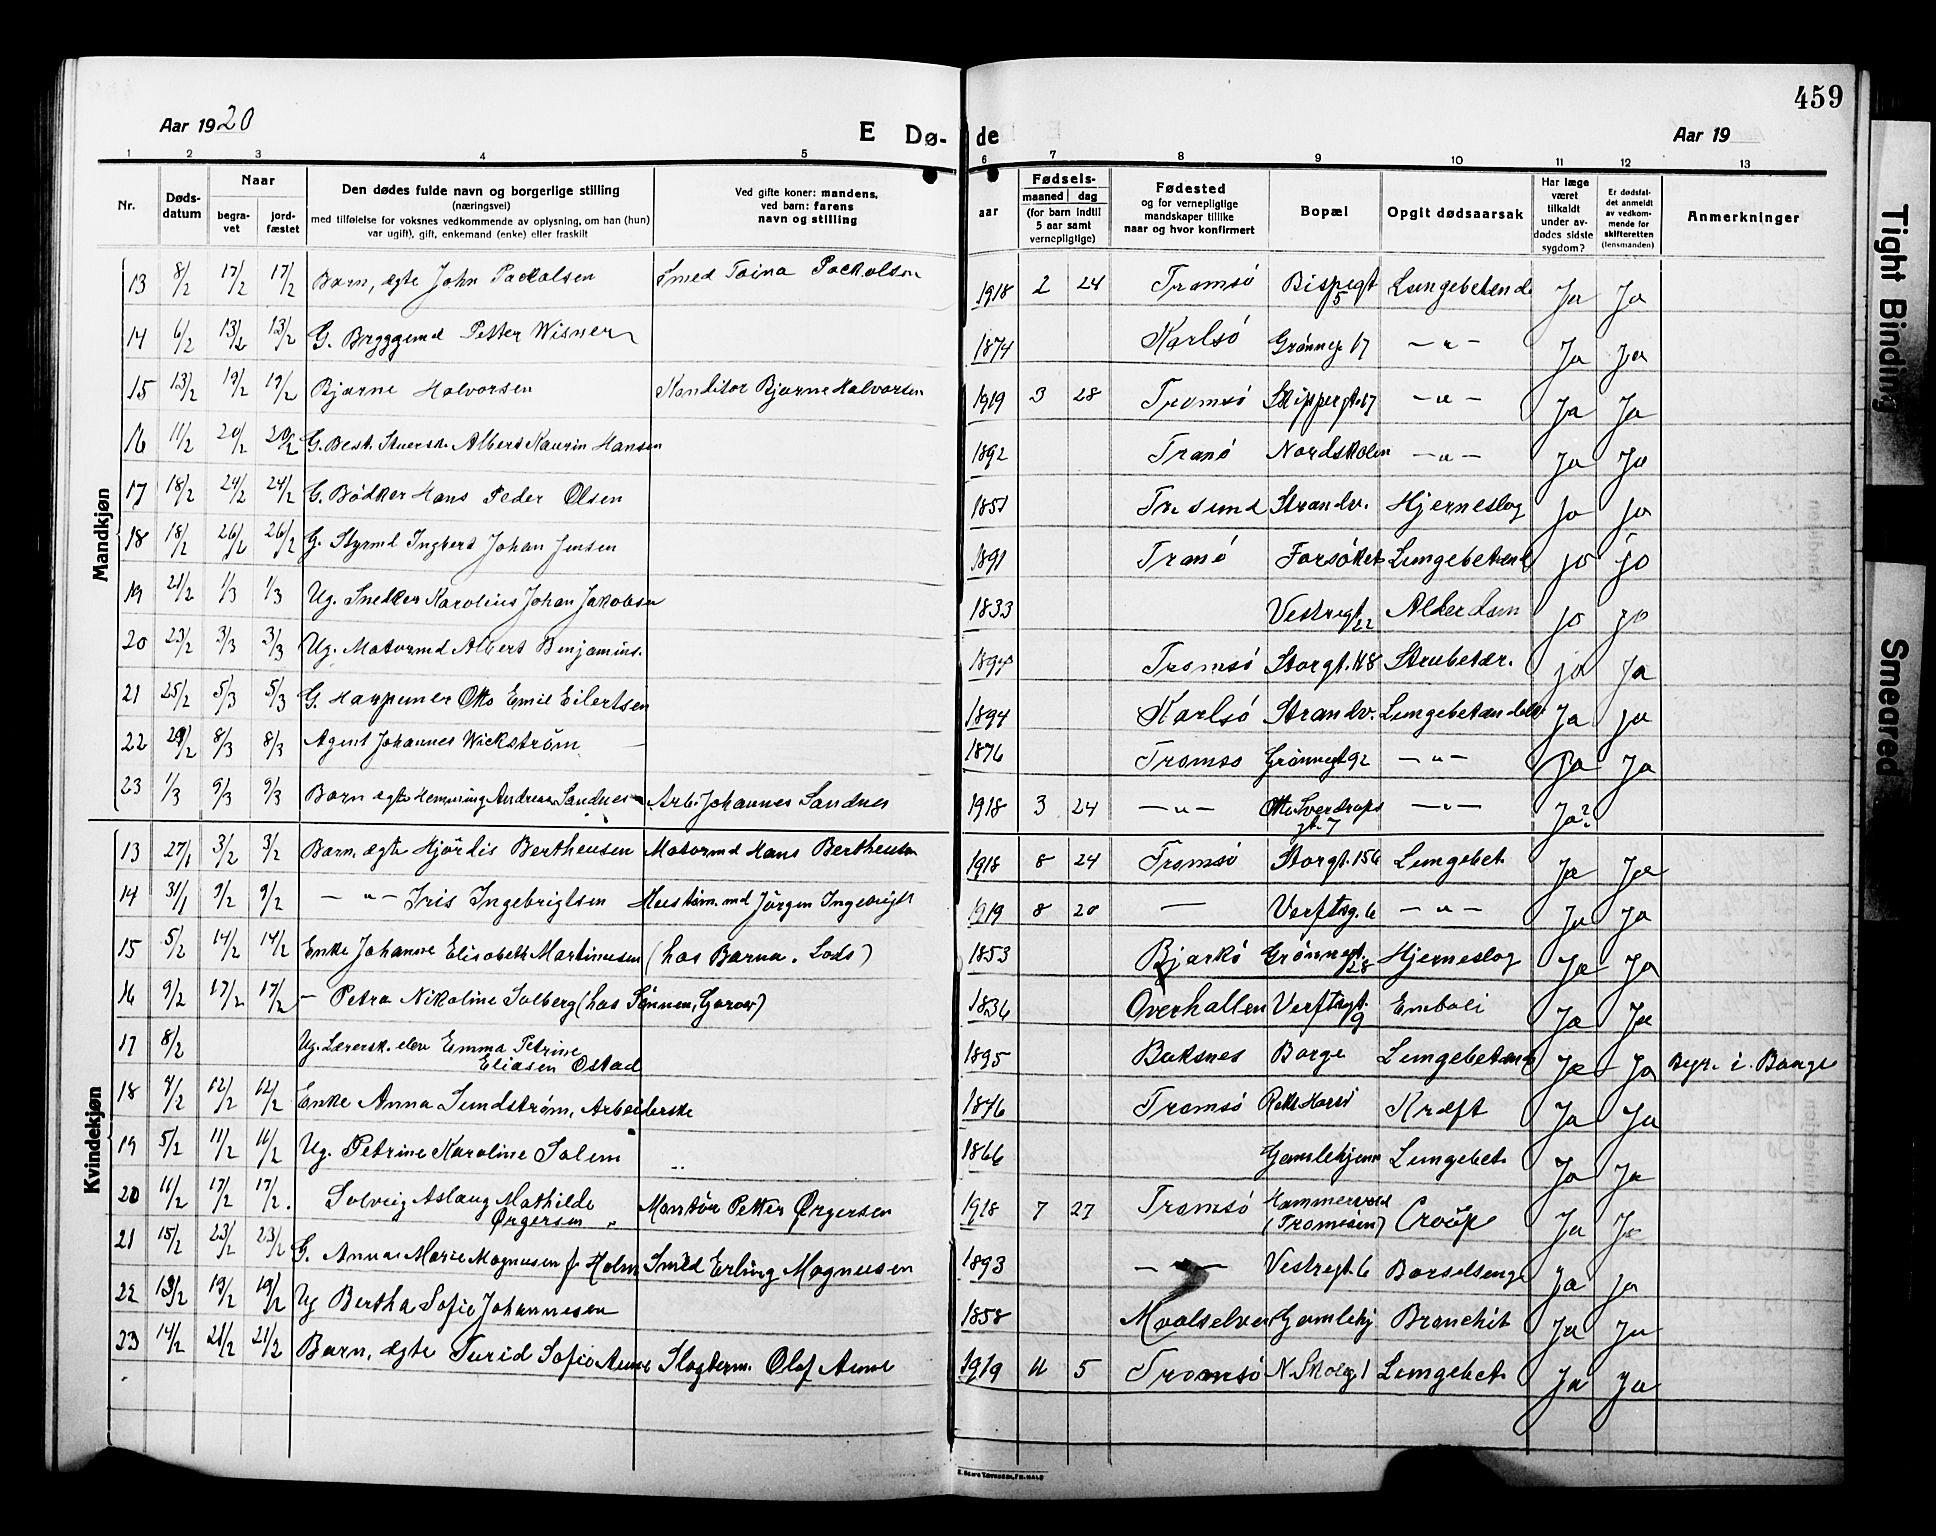 459
Aar 1920
E Dø- de
Aar 19
1 2 3 4 5 6 7 8 9 10 11 12 13
Nr.
Døds-
datum
Naar
begra-
vet
jord-
fæstet
Den dødes fulde navn og borgerlige stilling
(næringsvei)
med tilføielse for voksnes vedkommende av oplysning, om han (hun)
var ugift), gift, enkemand (enke) eller fraskilt
Ved gifte koner: mandens,
ved barn: farens
navn og stilling
aar
Fødsels-
maaned dag
(for barn indtil
5 aar samt
vernepligtige)
Fødested
og for vernepligtige
mandskaper tillike
naar og hvor konfirmert
Bopæl
Opgit dødsaarsak
Har læge
været
tilkaldt
under av-
dødes sidste
sygdom?
Er dødsfal-
det anmeldt
av vedkom-
mende for
skifteretten
(lensmanden)
Anmerkninger
Mandkjøn
13 8/2 17/2 17/2 Barn, ægte John Packalsen Smed Toina Packalsen 1918 2 24 Tromsö Bispegt 5 Lungebetænd. Ja Ja
14 6/2 13/2 13/2 G. Bryggemd Petter Wisner 1874 Karlsö Grönneg 17 — " — Ja Ja
15 13/2 19/2 19/2 Bjarne Halvorsen Konditor Bjarne Halvorsen 1919 3 28 Tromsö Skippergt. 17 — " — Ja Ja
16 11/2 20/2 20/2 G. Best. Stuersk. Albert Kaurin Hansen 1892 Tranö Nordskolen — " — Ja Ja
17 18/2 24/2 24/2 G. Bödker Hans Peder Olsen 1851 Tr. sund Strandv. Hjerneslag Ja Ja
18 18/2 26/2 26/2 G. Styrmd Ingbert Johan Jensen 1891 Tranö Forsöket Lungebetænd Ja Ja
19 21/2 1/3 1/3 Ug. Snedker Karolius Johan Jakobsen 1833 Vestregt 22 Alderdom Ja Ja
20 23/2 3/3 3/3 Ug. Motormd Albert Benjamins. Tromsö Storgt. 48 Strubetær. Ja Ja
21 25/2 5/3 5/3 G. Harpuner Otto Emil Eilertsen 1894 Karlsö Strandv. Lungebetændelse Ja Ja
22 8/3 8/3 Agent Johannes Wickström 1876 Tromso Grönnegt 92 — " — Ja Ja
23 1/3 9/3 9/3 Barn ægte Hemming Andreas Sandnes Arb. Johannes Sandnes 1918 3 24 — " — Otto Sverdrups gt. 7 — " — Ja?
Kvindekjøn
13 27/1 3/2 3/2 Barn, ægte Hjördis Bertheusen Motormd Hans Bertheusen 1918 8 24 Tromsö Storgt. 156 Lungebet Ja Ja
14 31/1 9/2 9/2 — " — Iris Ingebrigtsen Jörgen Ingebrigt 1919 8 20 — Verftsg. 6 — " — Ja Ja
15 5/2 14/2 14/2 Enke Johanne Elisabeth Martinusen (hos Barna. Lods) 1853 Bjarkö Grönnegt. 28 Hjerneslag Ja Ja
16 9/2 17/2 17/2 — Petra Nikoline Solberg (hos Sönnen, Garver) 1836 Overhallen Verftsgt. 9 Emboli Ja Ja
17 8/2 Ug. Lærersk. elev Emma Petrine
Eliasen Østad 1895 Buksnes Borge Lungebetænd Ja Ja Begr. i Borge
18 4/2 12/2 12/2 Enke Anna Sundström, Arbeiderske 1876 Tromsö Kræft Ja Ja
19 5/2 11/2 11/2 Ug. Petrine Karoline Solem 1866 Gamlehjem Lungebet. Ja Ja
20 11/2 17/2 17/2. Solveig Aslaug Mathilde
Ørgersen Montör Petter Ørgersen 1918 7 27 Tromsö Hammervold
(Tromsöen) Croup Ja Ja
21 15/2 23/2 23/2 G. Anna Marie Magnusen f. Holm Smed Erling Magnusen 1893 — " — Vestregt. 6 Barselseng Ja Ja
22 13/2 19/2 19/2 Ug Bertha Sofie Johannesen 1858 Maalselven Gamlehj Bronchit Ja Ja
23 14/2 21/2 21/2 Barn, ægte Turid Sofie Aune Slagterm. Olaf Aune 1919 11 5 Tromsö N. Skolg. 1 Lungebet. Ja Ja
Tight Binding
Smeared